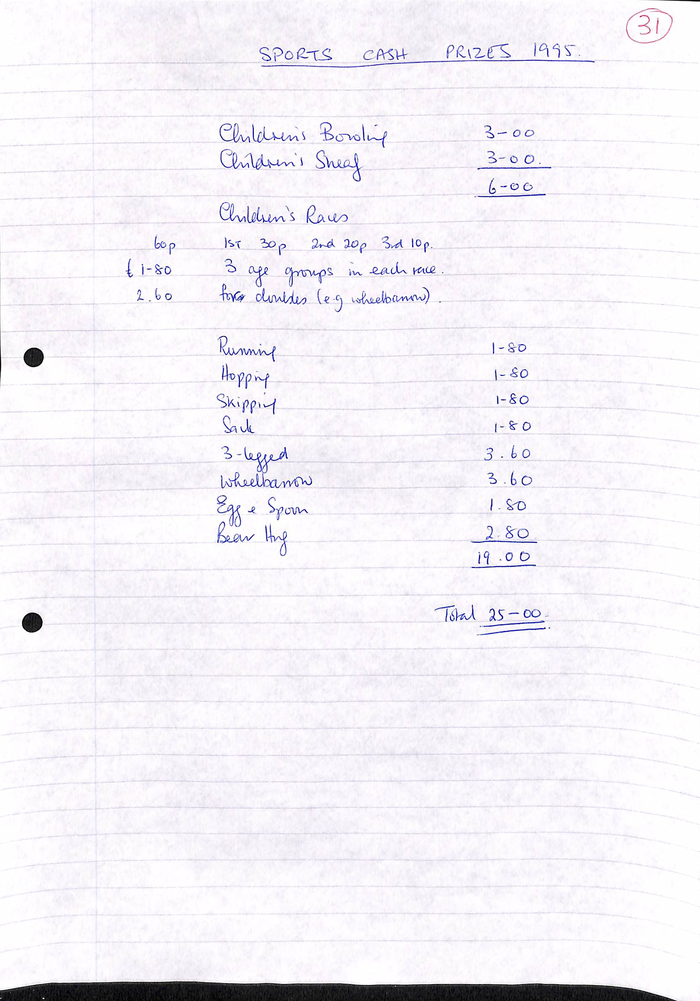 31
SPORTS CASH PRIZES 1995.
Children's Bowling 3-00
Children's Sheaf 3-00.
6-00
Children's Races
60p 1ST 30p 2nd 20p 3rd 10p.
£1-80 3 age groups in each race.
2.60 for doubles (e.g wheelbarrow).
Running 1-80
Hopping 1-80
Skipping 1-80
Sack 1-80
3-legged 3.60
Wheelbarrow 3.60
Egg & Spoon 1.80
Bear Hug 2.80
19.00
Total 25-00.